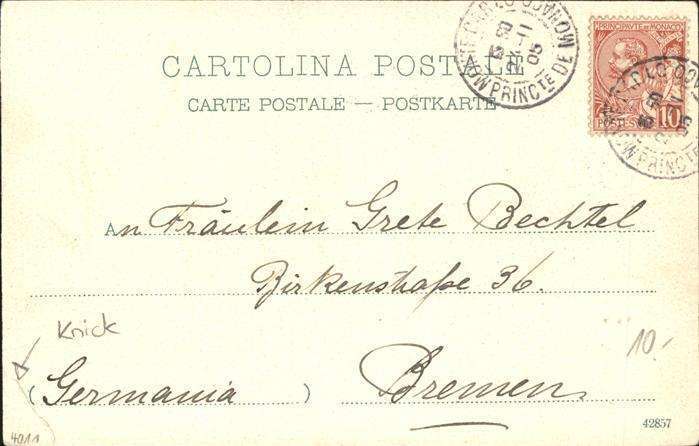 CARTOLINA POSTALE
CARTE POSTALE — POSTKARTE
PRINCIPAUTÉ DE MONACO
POSTES
10
MONTE-CARLO
PRINCTE DE MONACO
An Fräulein Grete Bechtel
Birkenstraße 36.
Knick
10.-
(Germania) Bremen
4911
42857